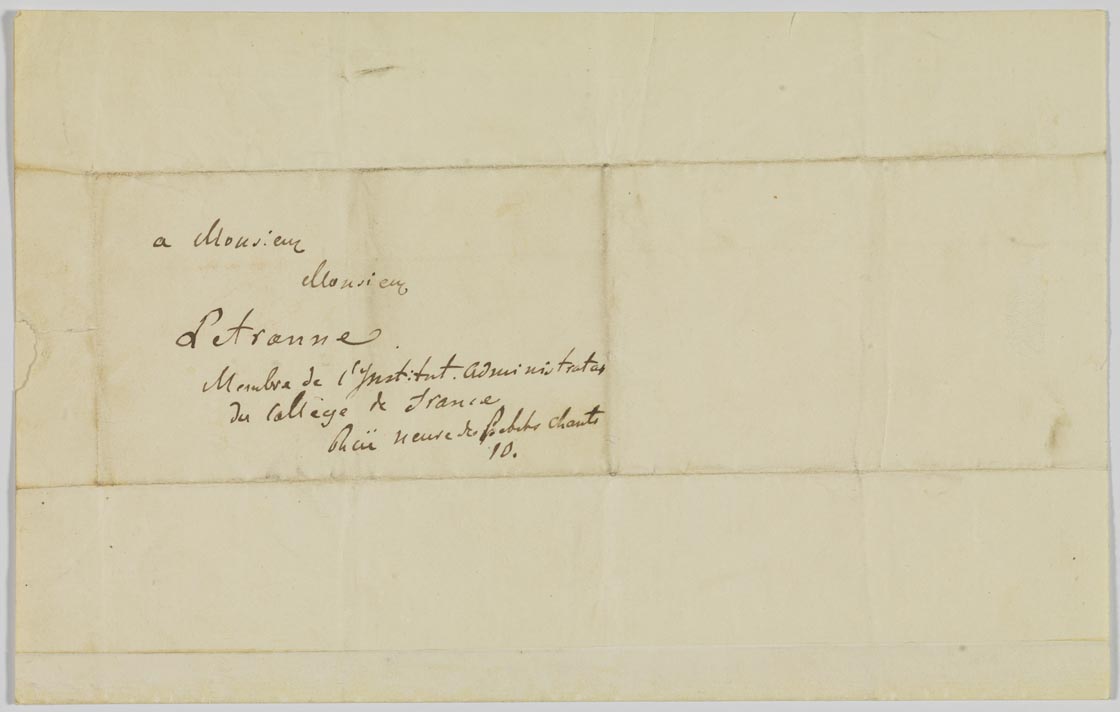 a Monsieur
Monsieur
Letronne.
Membre de l'Institut. administrateur
du Collège de france
Rüe neuve des petits chants
10.